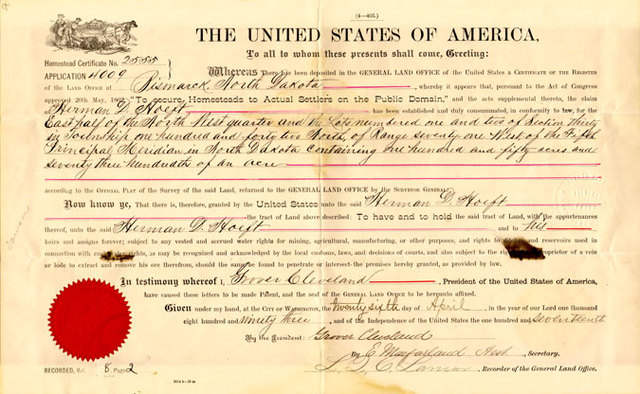 (4—405.)
THE UNITED STATES OF AMERICA,
To all to whom these presents shall come, Greeting:
Homestead Certificate No. 2555
APPLICATION 4009
Whereas There has been deposited in the GENERAL LAND OFFICE of the United States a CERTIFICATE OF THE REGISTER
OF THE LAND OFFICE AT Bismarck, North Dakota, whereby it appears that, pursuant to the Act of Congress
approved 20th May, 1862, "To secure Homesteads to Actual Settlers on the Public Domain," and the acts supplemental thereto, the claim
of Herman D. Hoeft has been established and duly consummated, in conformity to law, for the
East half of the North West quarter and the Lots numbered one and two of Section thirty
in Township one hundred and forty two North, of Range seventy one West of the Fifth
Principal Meridian in North Dakota containing one hundred and fifty acres and
seventy three hundredths of an acre
according to the OFFICIAL PLAT of the Survey of the said Land, returned to the GENERAL LAND OFFICE by the SURVEYOR GENERAL
Now know ye, That there is, therefore, granted by the United States unto the said Herman D. Hoeft
the tract of Land above described: To have and to hold the said tract of Land, with the appurtenances
thereof, unto the said Herman D. Hoeft and to his
heirs and assigns forever; subject to any vested and accrued water rights for mining, agricultural, manufacturing, or other purposes, and rights to ditches and reservoirs used in
connection with such water rights, as may be recognized and acknowledged by the local customs, laws, and decisions of courts, and also subject to the right of the proprietor of a vein
or lode to extract and remove his ore therefrom, should the same be found to penetrate or intersect the premises hereby granted, as provided by law.
In testimony whereof I, Grover Cleveland, President of the United States of America,
have caused these letters to be made Patent, and the seal of the GENERAL LAND OFFICE to be hereunto affixed.
Given under my hand, at the CITY OF WASHINGTON, the twenty sixth day of April, in the year of our Lord one thousand
eight hundred and ninety three, and of the Independence of the United States the one hundred and seventeenth
By the President: Grover Cleveland
By E. Macfarland Asst. Secretary.
RECORDED, Vol. 8 Page 2
Recorder of the General Land Office.